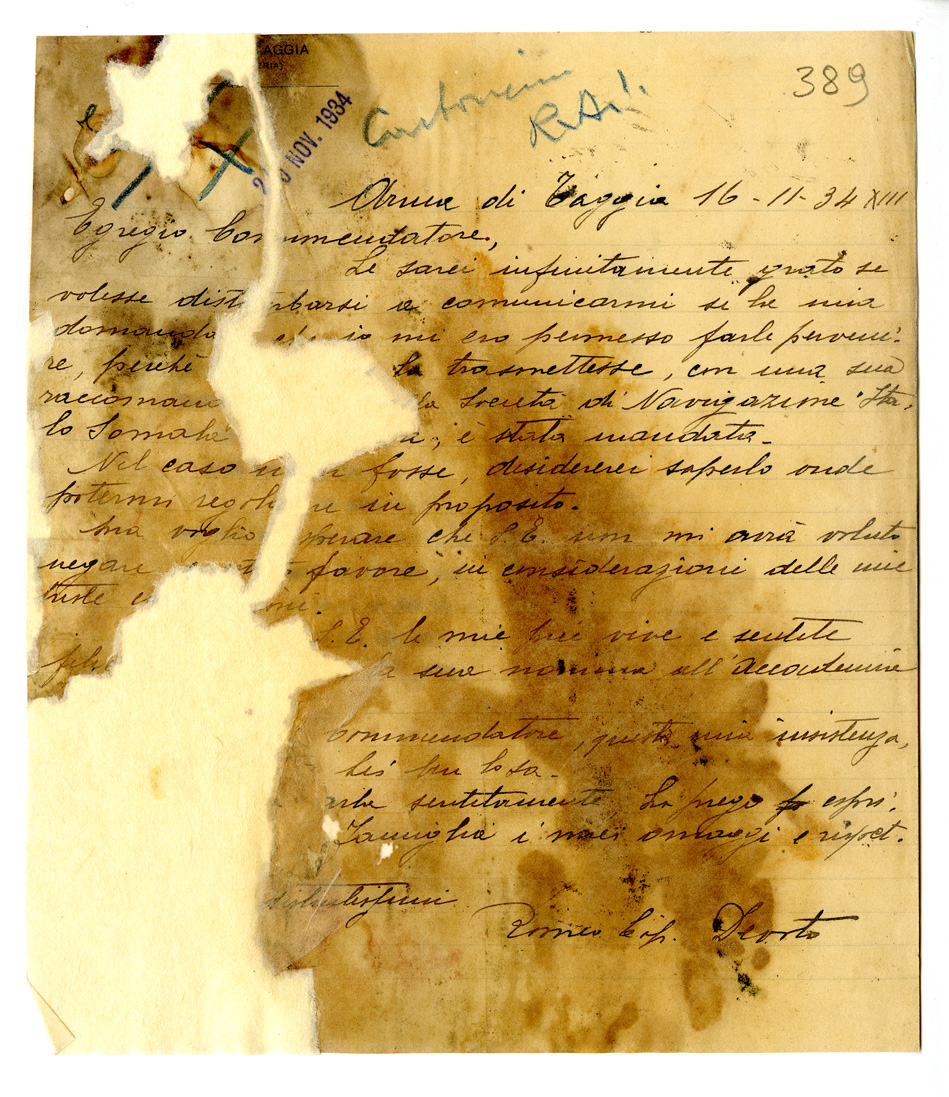 AGGIA
389
20 NOV. 1934
R.A.!
Arma di Taggia 16-11-34 XIII
Egregio Commendatore,
Le sarei infinitamente grato se
volesse disturbarsi a comunicarmi se la mia
domanda che io mi ero permesso farle perveni-
re, perchè la trasmettesse, con una sua
la Società di Navigazione "Ita-
lo Somala è stata mandata.
Nel caso non fosse, desidererei saperlo onde
potermi regolare in proposito.
Ma voglio sperare che S.E. non mi avrà voluto
negare questo favore, in considerazione delle mie
triste
S.E. le mie più vive e sentite
la sua nomina all'Accademia
Commendatore, questa mia insistenza,
sentitamente La prego espri-
Famiglia i miei omaggi e rispet.
Romeo Cap. Devoto